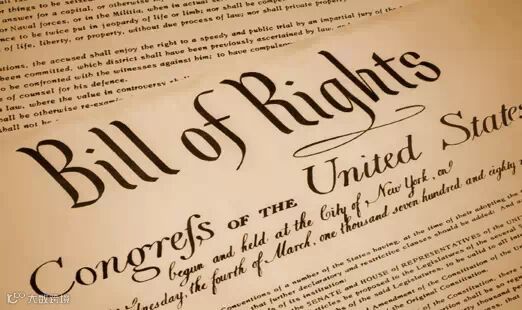 for things to be seized.
answer for a capital, or otherwise
or Naval forces, or in the Militia, when in actual
ence to be twice put in jeopardy of life or limb; nor shall be comp
of life, liberty, or property, without due process of law; nor shall private property
tions, the accused shall enjoy the right to a speedy and public trial by an impartial jury of the
been committed, which district shall have been previously ascertained by law, and
to be confronted with the witnesses against him; to have compulsory
of counsel for his defence.
law, where the value in controversy shall
shall be otherwise re-exam
shall not be
Bill of Rights
Congreſs OF THE United States
begun and held at the City of New York, on
Wednesday, the fourth of March, one thousand seven hundred and eighty
conventions of a number of the States having, at the time of their adopting the
that further declaratory and restrictive clauses should be added: And
of its institution:
the SENATE and HOUSE of REPRESENTATIVES of the UN
articles be proposed to the Legislatures of the several
by the said Legislatures, to be valid to all
Amendment of the Constitution of the
the Original Constitution.
大数跨境